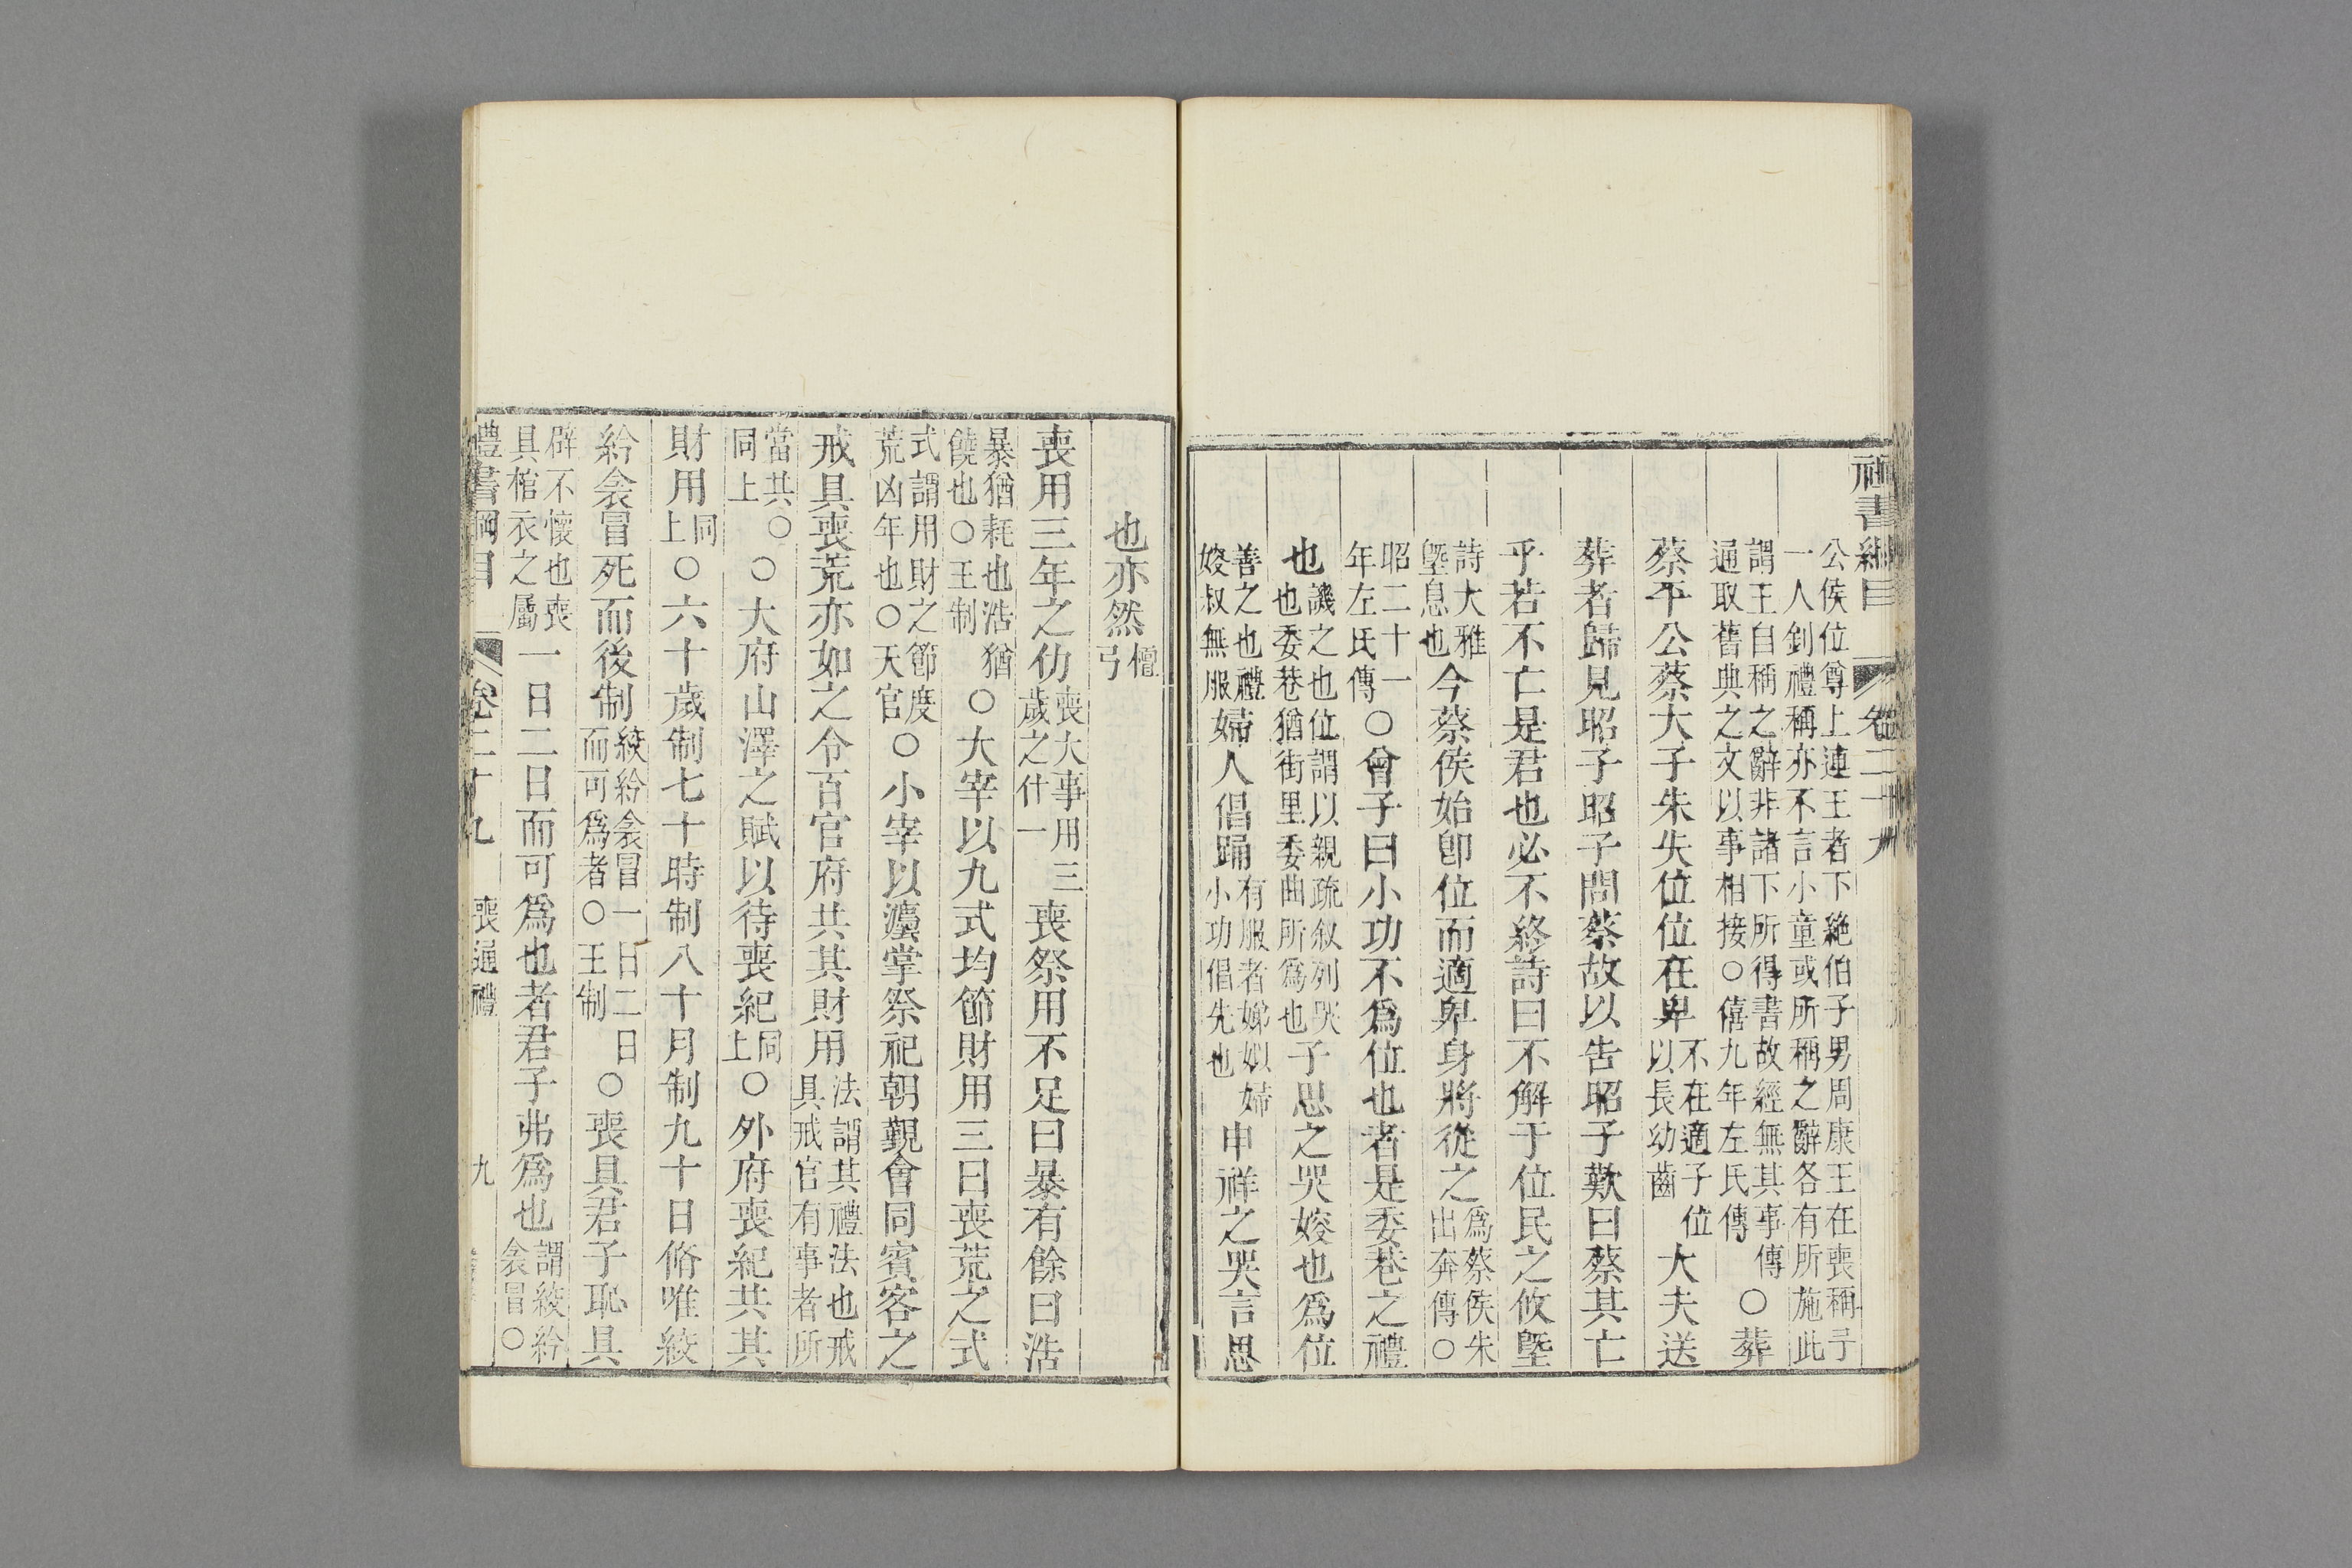 禮書綱目　卷二十九
公侯位尊上連王者下絶伯子男周康王在喪稱予
一人釗禮稱亦不言小童或所稱之辭各有所施此
謂王自稱之辭非諸下所得書故經無其事傳
通取舊典之文以事相接○僖九年左氏傳
○葬
蔡平公蔡大子朱失位位在卑
不在適子位
以長幼齒
大夫送
葬者歸見昭子昭子問蔡故以告昭子歎曰蔡其亡
乎若不亡是君也必不終詩曰不解于位民之攸塈
詩大雅
塈息也
今蔡侯始卽位而適卑身將從之
爲蔡侯朱
出奔傳○
昭二十一
年左氏傳
○曾子曰小功不爲位也者是委巷之禮
也
譏之也位謂以親疏叙列哭
也委巷猶街里委曲所爲也
子思之哭嫂也爲位
善之也禮
嫂叔無服
婦人倡踊
有服者娣姒婦
小功倡先也
申祥之哭言思
也亦然
檀
弓
喪用三年之仂
喪大事用三
歲之什一
喪祭用不足曰暴有餘曰浩
暴猶耗也浩猶
饒也○王制
○大宰以九式均節財用三曰喪荒之式
式謂用財之節度
荒凶年也○天官
○小宰以灋掌祭祀朝覲會同賓客之
戒具喪荒亦如之令百官府共其財用
法謂其禮法也戒
具戒官有事者所
當共○
同上
○大府山澤之賦以待喪紀
同
上
○外府喪紀共其
財用
同
上
○六十歲制七十時制八十月制九十日脩唯絞
紟衾冒死而後制
絞紟衾冒一日二日
而可爲者○王制
○喪具君子恥具
辟不懷也喪
具棺衣之屬
一日二日而可爲也者君子弗爲也
謂絞紟
衾冒○
禮書綱目　卷二十九　喪通禮　九